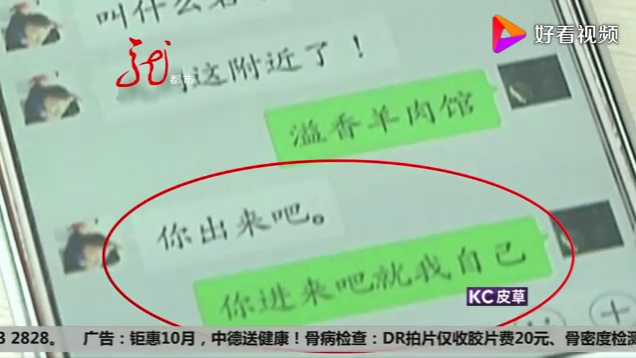 叫什么
好看视频
这附近了！
都市
溢香羊肉馆
你出来吧。
你进来吧就我自己
KC皮草
2828。 广告：钜惠10月，中德送健康！骨病检查：DR拍片仅收胶片费20元、骨密度检测